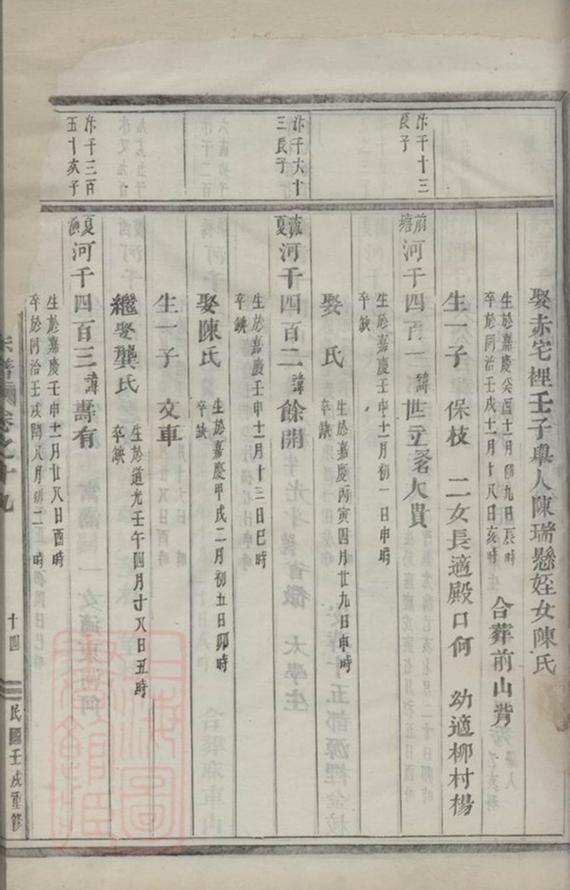 娶赤宅裡壬子舉人陳瑞懸姪女陳氏
生於嘉慶癸酉十月初九日辰時
卒於同治壬戌十一月十八日亥時
合葬前山背
生一子 保枝 二女長適殿口何 幼適柳村楊
忭千十三
長子
前塘
河千四百一諱世立又名大貴
生於嘉慶壬申十一月初一日申時
卒缺
娶 氏
生於嘉慶丙寅四月廿九日申時
卒缺
忭千六十
三長子
夏
河千四百二諱餘開
生於嘉慶壬申十一月十三日巳時
卒缺
娶陳氏
生於嘉慶甲戌二月初五日卯時
卒缺
生一子 文車
繼娶龔氏
生於道光壬午四月廿八日丑時
卒缺
忭千三百
五十亥子
夏
河千四百三諱壽有
生於嘉慶壬申十二月廿八日酉時
卒於同治壬戌閏八月初二 時
宗譜 卷之十九
十四
民國壬戌重修